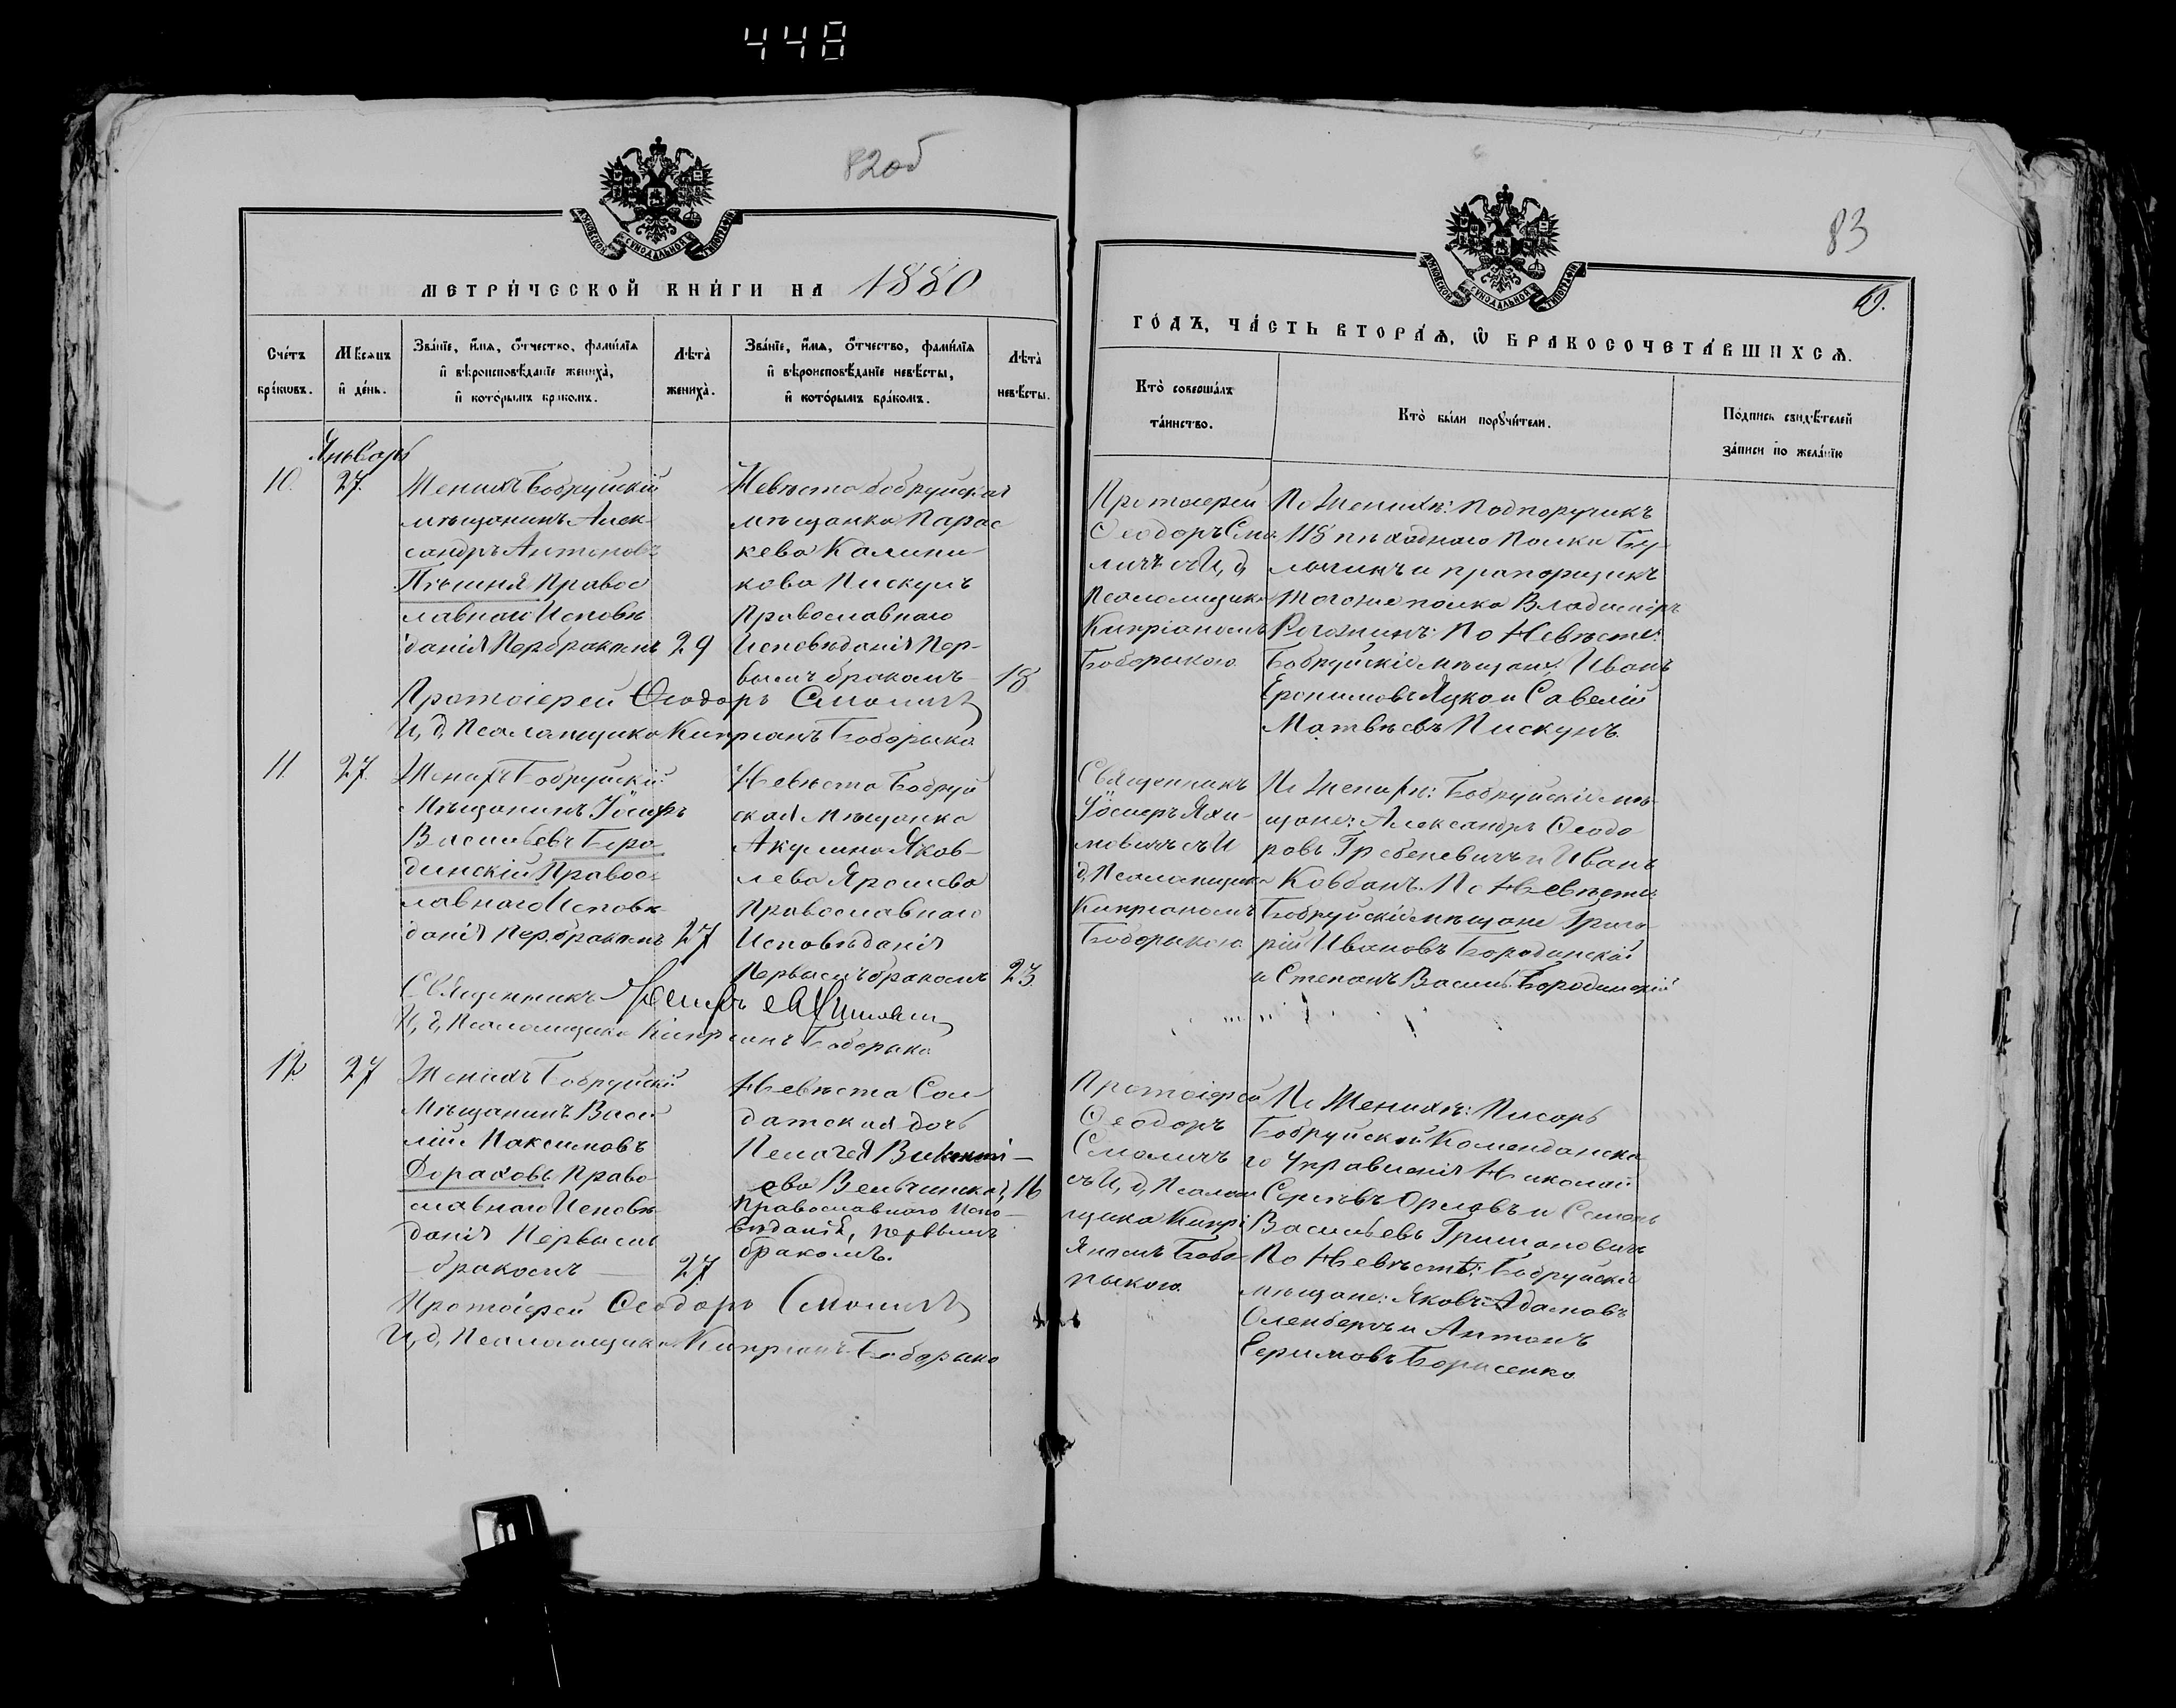 448
82об
МЕТРИЧЕСКОЙ КНИГИ НА 1880
Счетъ браковъ.
Мѣсяцъ и день.
Званіе, имя, отчество, фамилія и вѣроисповѣданіе жениха, и которымъ бракомъ.
Лѣта жениха.
Званіе, имя, отчество, фамилія и вѣроисповѣданіе невѣсты, и которымъ бракомъ.
Лѣта невѣсты.
Январь
10.
27.
Женихъ Бобруйскій
мѣщанинъ Алек-
сандръ Антоновъ
Пѣшня Правос
лавнаго Исповѣ
данія Пер. бракомъ 29
Невѣста бобруйская
мѣщанка Парас
кева Калини-
кова Пискунъ
Православнаго
Исповѣданія Пер-
вымъ бракомъ 18
Протоіерей Ѳеодоръ Смоличъ
И, д, Псаломщика Кипріанъ Боборыка
11.
27.
Женихъ Бобруйскій
Мѣщанинъ Іосифъ
Васильевъ Боро-
динскій Правос-
лавнаго Исповѣ-
данія Пер. бракомъ 27
Невѣста Бобруй
ская Мѣщанка
Акулина Яков-
лева Ярошева
Православнаго
Исповѣданія
Первымъ бракомъ 23
Священникъ Іосифъ Яхимовичъ
И, д, Псаломщика Кипріанъ Боборыка
12.
27
Женихъ Бобруйскій
Мѣщанинъ Васи
лій Максимовъ
Дораховъ Право-
славнаго Исповѣ-
данія Первымъ
бракомъ 27
Невѣста Сол
датская дочь
Пелагея Викенті-
ева Вельчинская, 16
Православнаго Испо-
вѣданія, первымъ
бракомъ.
Протоіерей Ѳеодоръ Смоличъ
И, д, Псаломщика Кипріанъ Боборыка
83
ГОДЪ, ЧАСТЬ ВТОРАЯ, Ѡ БРАКОСОЧЕТАВШИХСЯ.
Кто совершалъ таинство.
Кто были поручители.
Подпись свидѣтелей записи по желанію
Протоіерей
Ѳеодоръ Смо-
личъ съ И, д,
Псаломщика
Кипріаномъ
Боборыкою
По Женихѣ: Подпоручикъ
118 пѣхотнаго Полка
и прапорщикъ
тогоже полка Владиміръ
Рогожинъ. По Невѣстѣ:
Бобруйскіе мѣщане Иванъ
Еронимовъ Яцко и Савелій
Матвѣевъ Пискунъ.
Священникъ
Іосифъ Яхи-
мовичъ съ И
д, Псаломщика
Кипріаномъ
Боборыкою
По Женихѣ: Бобруйскіе мѣ-
щане: Александръ Ѳеодо-
ровъ Гребеневичъ и Иванъ
Ковбанъ. По Невѣстѣ:
Бобруйскіе мѣщане Григо-
рій Ивановъ Бородинскій
и Степанъ Васил. Бородинскій
Протоіерей
Ѳеодоръ
Смоличъ
съ И, д, Псалом
щика Кипрі
яномъ Бобо-
рыкою.
По Женихѣ: Писарь
Бобруйскаго Комендантска
го Управленія Николай
Сергѣевъ Орловъ и Семенъ
Васильевъ Гришановичъ
По Невѣстѣ: Бобруйскіе
мѣщане: Яковъ Адамовъ
Оленберъ и Антонъ
Борисенко